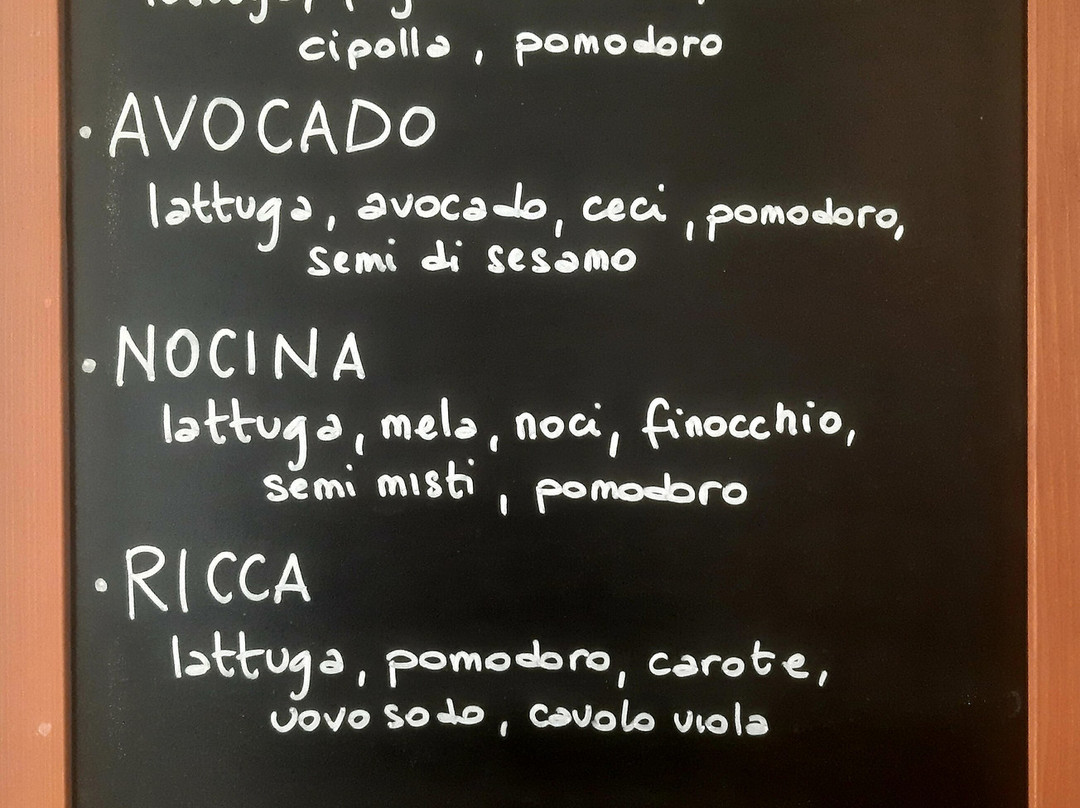 cipolla, pomodoro
• AVOCADO
lattuga, avocado, ceci, pomodoro,
semi di sesamo
• NOCINA
lattuga, mela, noci, finocchio,
semi misti, pomodoro
• RICCA
lattuga, pomodoro, carote,
uovo sodo, cavolo viola